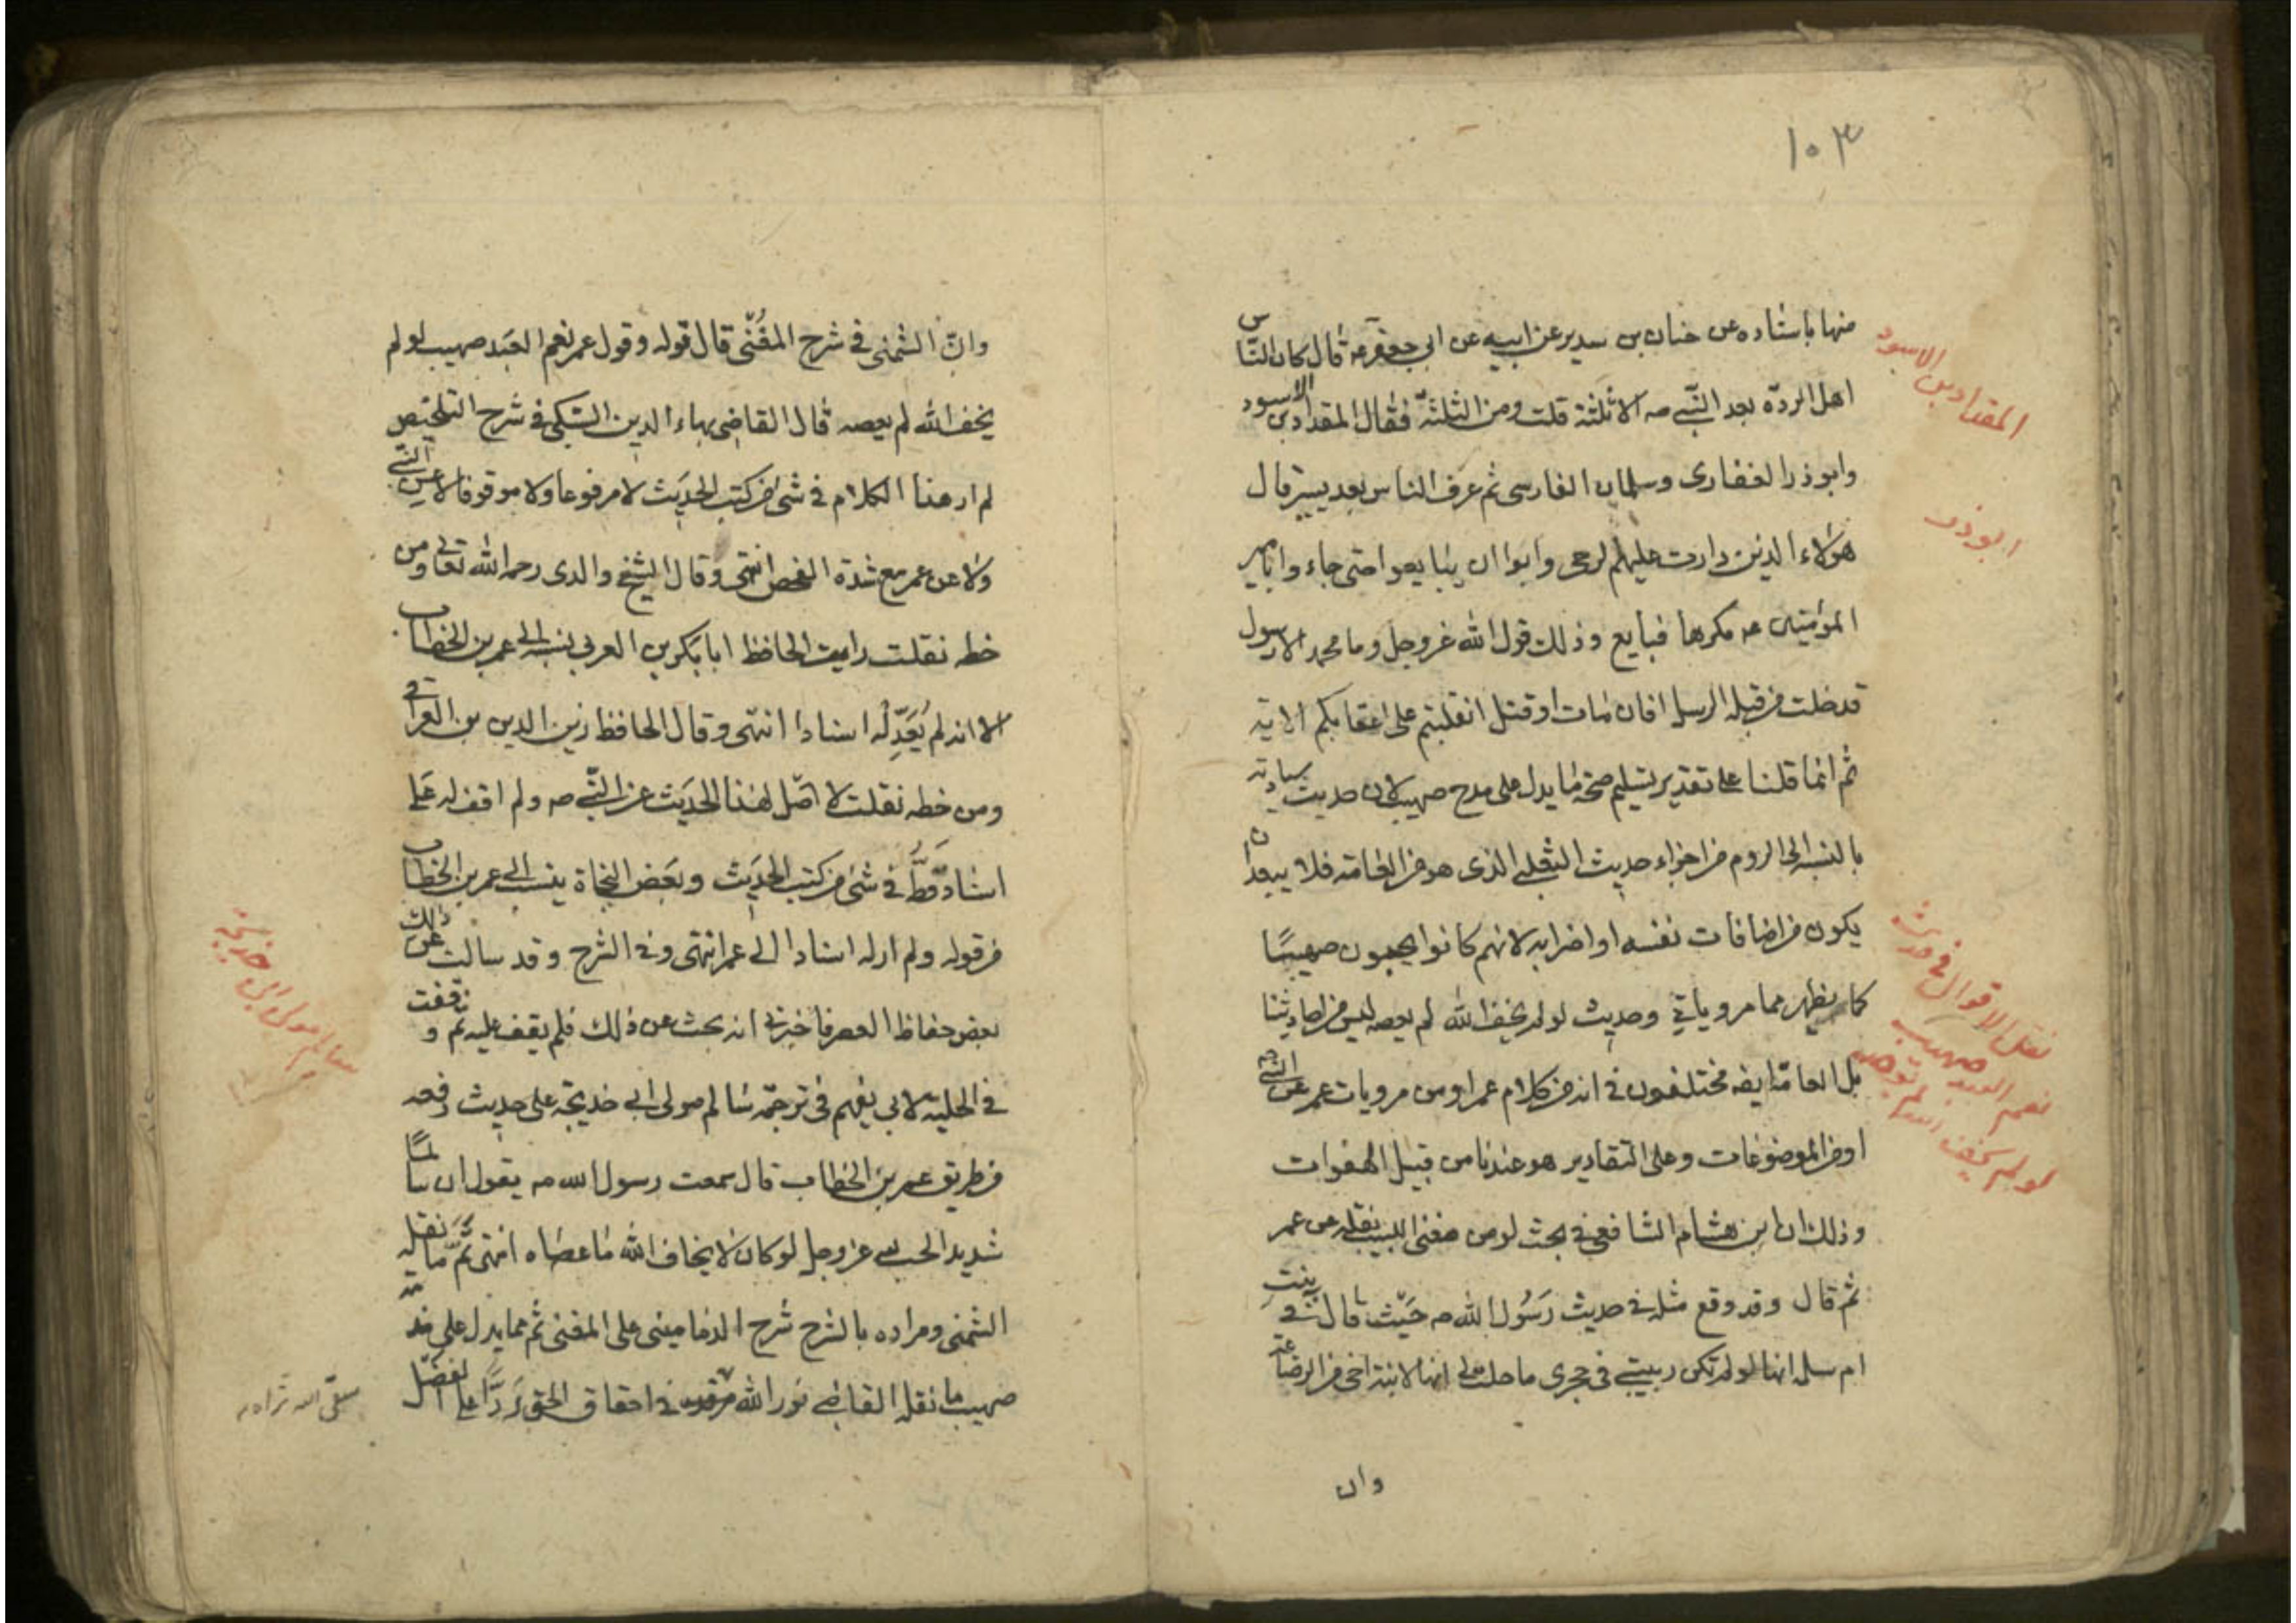 ١٠٣
منها باسناده عن حنان بن سدير عن ابيه عن ابي جعفر ع قال كان الناس
اهل الردّة بعد النّبي صه الا ثلثة قلت ومن الثلثة فقال المقداد بن الاسود
وابو ذر الغفارى وسلمان الفارسى ثم عرف الناس بعد يسير قال
هؤلاء الذين دارت عليهم الرحى وابوا ان يبايعوا حتى جاء وا بامير
المؤمنين عه مكرها فبايع وذلك قول الله عز وجل وما محمد الا رسول
قد خلت من قبله الرسل افان مات او قتل انقلبتم على اعقابكم الاية
ثم انما قلنا على تقدير تسليم صحة ما يدل على مدح صهيب لان حديث سباقته
بالنسبة الى الروم من اجزاء حديث الثعلبي الذى هو من العامة فلا يبعد ان
يكون من اضافات نفسه او اضرابه لانهم كانوا يحبون صهيبًا
كما يظهر مما مر وياتي وحديث لو لم يخف الله لم يعصه ليس من احاديثنا
بل العامّة ايضه مختلفون في انه من كلام عمر او من مرويات عمر عن النبي صه
او من الموضوعات وعلى التقادير هو عندنا من قبيل الهفوات
وذلك ان ابن هشام الشافعي في بحث لو من مغنى اللبيب نقله عن عمر
ثم قال وقد وقع مثله في حديث رَسُول الله صه حَيْث قال في بنت
ام سلمه انها لو لم تكن ربيبتي في حجرى ما حلت لي انها لابنة اخى من الرضاعة
وان
المقداد بن الاسود
ابو ذر
نقل الاقوال في حديث
نعم العبد صهيب
لو لم يخف الله لم يعصه
وانّ الشمنى في شرح المغُنّى قال قوله وقول عمر نعم العَبد صهيب لو لم
يخف الله لم يعصه قال القاضي بهاء الدين السّبكي في شرح التلخيص
لم ار هذا الكلام في شئ من كتب الحديث لا مرفوعا ولا موقوفا لا عن النبي صه
ولا عن عمر مع شدة الفحص انتهى وقال الشيخ والدى رحمه الله تعالى ومن
خطه نقلت رايت الحافظ ابا بكر بن العربي نسبه الى عمر بن الخطاب
الا انه لم يُعَدِّلْه اسنادا انتهى وقال الحافظ زين الدين بن العراقي
ومن خطه نقلت لا اصل لهذا الحديث عن النّبي صه ولم اقف له على
اسناد قَطُّ في شئ من كتب الحديث وبعض النحاة ينسب الى عمر بن الخطاب
من قوله ولم ار له اسنادا الى عمر انتهى وفي الشرح وقد سالت عن ذلك
بعض حفاظ العصر فاخبرني انه بحث عن ذلك فلم يقف عليه ثم وقفت
في الحلية لابي نعيم في ترجمة سالم مولى ابي حذيفة على حديث رفعه
من طريق عمر بن الخطاب قال سمعت رسول الله صه يقول ان سالمًا
شديد الحب لله عز وجل لو كان لا يخاف الله ما عصاه انتهى ثُمّ ما نقله
الشمنى ومراده بالشرح شرح الدمامينى على المغنى ثم مما يدل على ذم
صهيب ما نقله القاضي نور الله مرقده في احقاق الحق رَدًّا على الفضل
سالم مولى ابى حذيفة
سقى الله ثراه